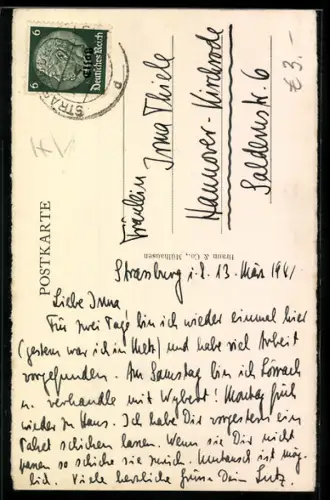 6 6
Elsaß
Deutsches Reich
STRA
d
€ 3,-
POSTKARTE
Braun & Co., Mülhausen
Fräulein
Irma Thiele
Hannover-Kirchrode
Saldernstr. 6
Strassburg i. E. 13. März 1941
Liebe Irma
Für zwei Tage bin ich wieder einmal hier
(gestern war ich in Metz) und habe viel Arbeit
vorgefunden. Am Samstag bin ich Lörrach
u. verhandle mit Wybert! Montag früh
wieder zu Haus. Ich habe Dir vorgestern ein
Paket schicken lassen. Wenn sie Dir nicht
passen so schicke sie zurück. Umtausch ist mög-
lich. Viele herzliche Grüsse Dein Lutz.